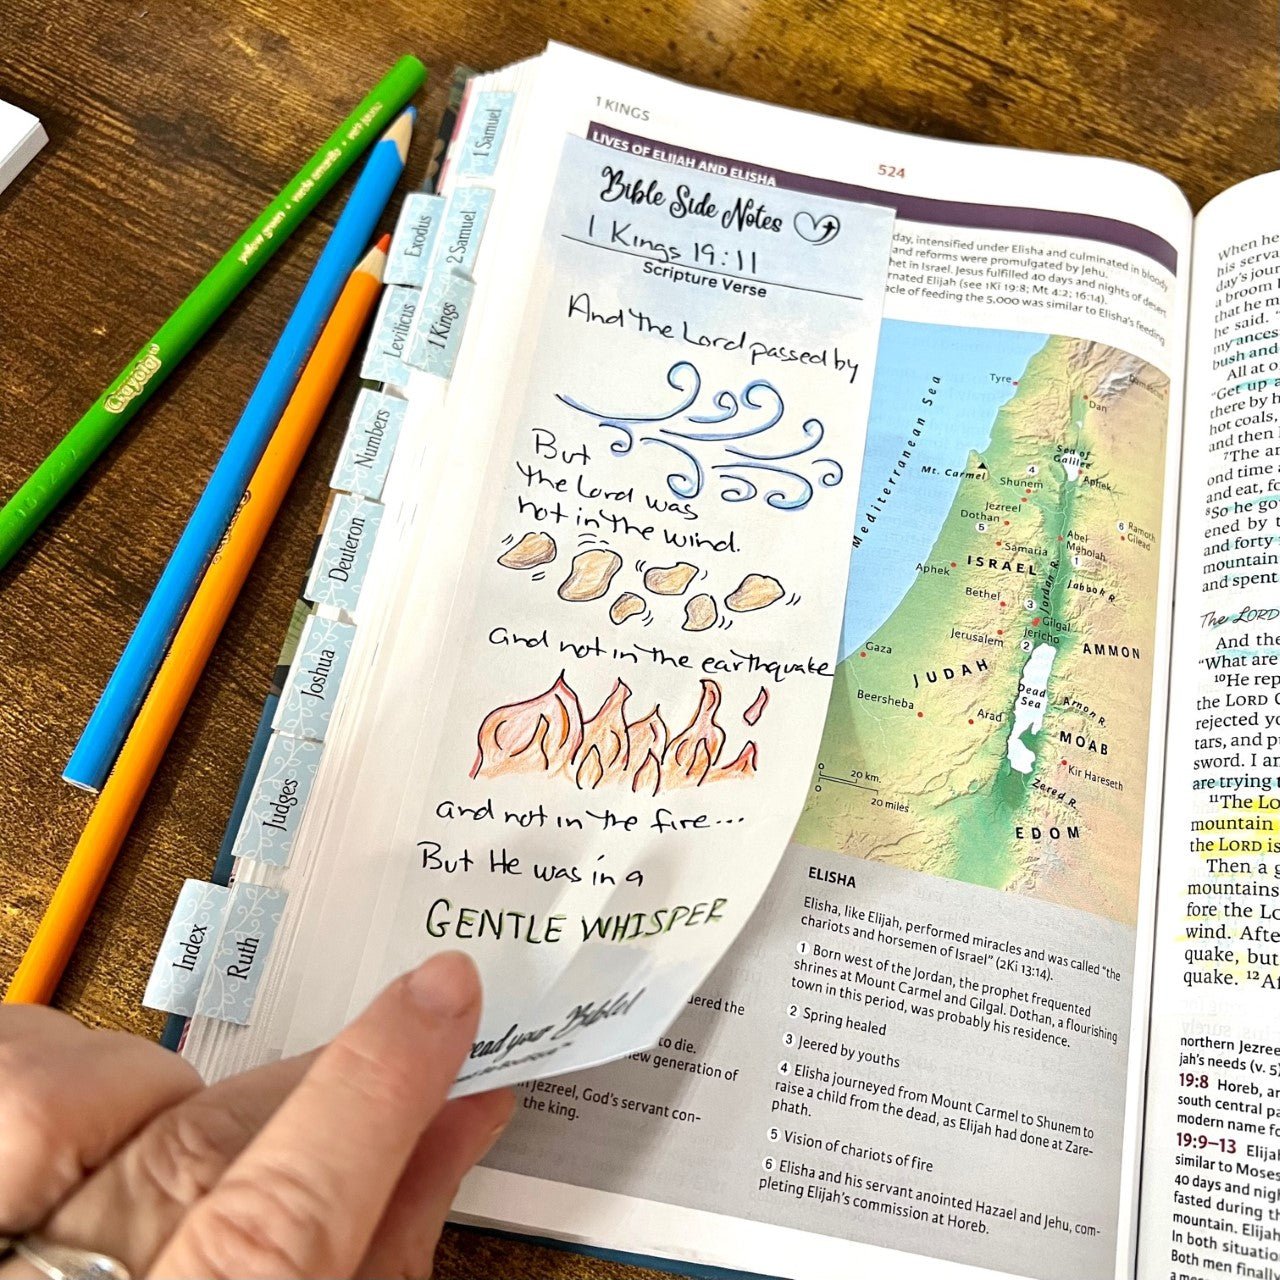 1 KINGS
524
LIVES OF ELIJAH AND ELISHA
Bible Side Notes
1 Kings 19:11
Scripture Verse
And the Lord passed by
But
the Lord was
not in the wind.
and not in the earthquake
and not in the fire...
But He was in a
GENTLE WHISPER
ead your Bible!
day, intensified under Elisha and culminated in bloody
and reforms were promulgated by Jehu.
het in Israel. Jesus fulfilled 40 days and nights of desert
rnated Elijah (see 1Ki 19:8; Mt 4:2; 16:14).
acle of feeding the 5,000 was similar to Elisha's feeding
Mediterranean Sea
Tyre
Damascus
Dan
Sea of
Galilee
Mt. Carmel
4
Aphek
Shunem
Jezreel
Dothan
5
6 Ramoth
Gilead
Abel
Meholah
1
Samaria
Aphek
ISRAEL
Jordan R.
Jabbok R.
Bethel
3
Gilgal
Jerusalem
Jericho
2
AMMON
Gaza
JUDAH
Dead
Sea
Beersheba
Arad
Arnon R.
MOAB
Kir Hareseth
0 20 km.
0 20 miles
Zered R.
EDOM
ELISHA
Elisha, like Elijah, performed miracles and was called "the
chariots and horsemen of Israel" (2Ki 13:14).
1 Born west of the Jordan, the prophet frequented
shrines at Mount Carmel and Gilgal. Dothan, a flourishing
town in this period, was probably his residence.
2 Spring healed
3 Jeered by youths
4 Elisha journeyed from Mount Carmel to Shunem to
raise a child from the dead, as Elijah had done at Zare-
phath.
5 Vision of chariots of fire
6 Elisha and his servant anointed Hazael and Jehu, com-
pleting Elijah's commission at Horeb.
dered the
to die.
ew generation of
Jezreel, God's servant con-
the king.
When he
his serva
day's jour
a broom
that he m
he said. "
my ances
bush and
All at o
"Get up a
there by h
hot coals,
and then
7The an
ond time
and eat, fo
8So he go
ened by t
and forty
mountain
and spent
The LORD
And the
"What are
10He rep
the LORD
rejected yo
tars, and p
sword. I an
are trying
11The Lo
mountain
the LORD is
Then a g
mountains
fore the LO
wind. After
quake, but
quake. 12Af
northern Jezree
jah's needs (v. 5)
19:8 Horeb, an
south central pa
modern name fo
19:9–13 Elijah
similar to Moses
40 days and nigh
fasted during th
mountain. Elijah
In both situatio
Both men finally
1 Samuel
2 Samuel
1 Kings
Exodus
Leviticus
Numbers
Deuteron
Joshua
Judges
Ruth
Index
Crayola
yellow green • verde amarillo • vert jaune